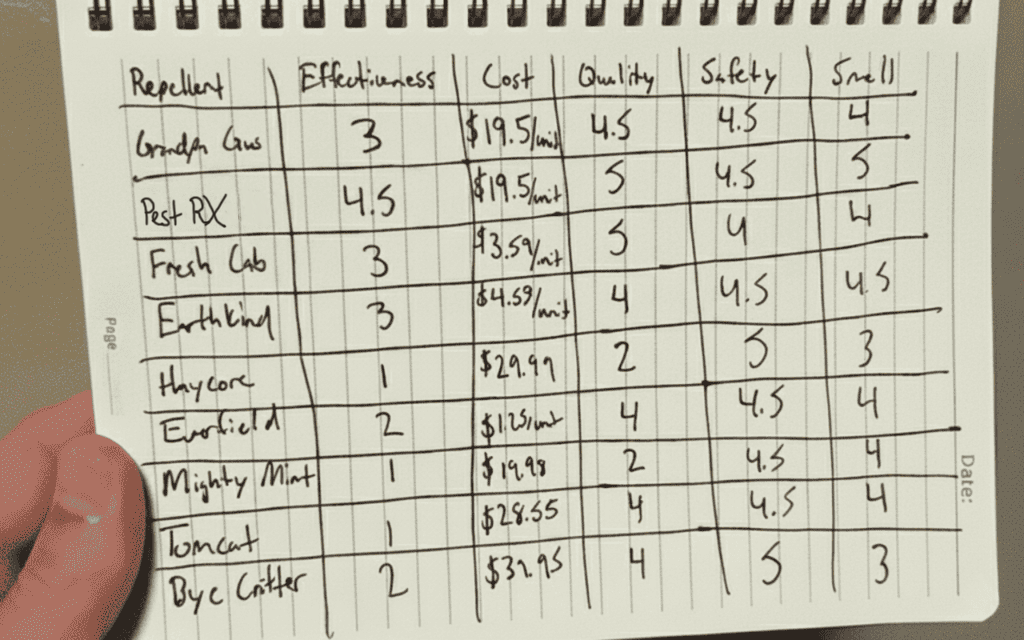 Repellent Effectiveness Cost Quality Safety Smell
Grandpa Gus 3 $19.5/unit 4.5 4.5 4
Pest RX 4.5 $19.5/unit 5 4.5 5
Fresh Cab 3 $3.59/unit 5 4 4
Earthkind 3 $4.59/unit 4 4.5 4.5
Haycore 1 $29.99 2 5 3
Everfield 2 $1.25/unit 4 4.5 4
Mighty Mint 1 $19.98 2 4.5 4
Tomcat 1 $28.55 4 4.5 4
Bye Critter 2 4 5 3
Page
Date: